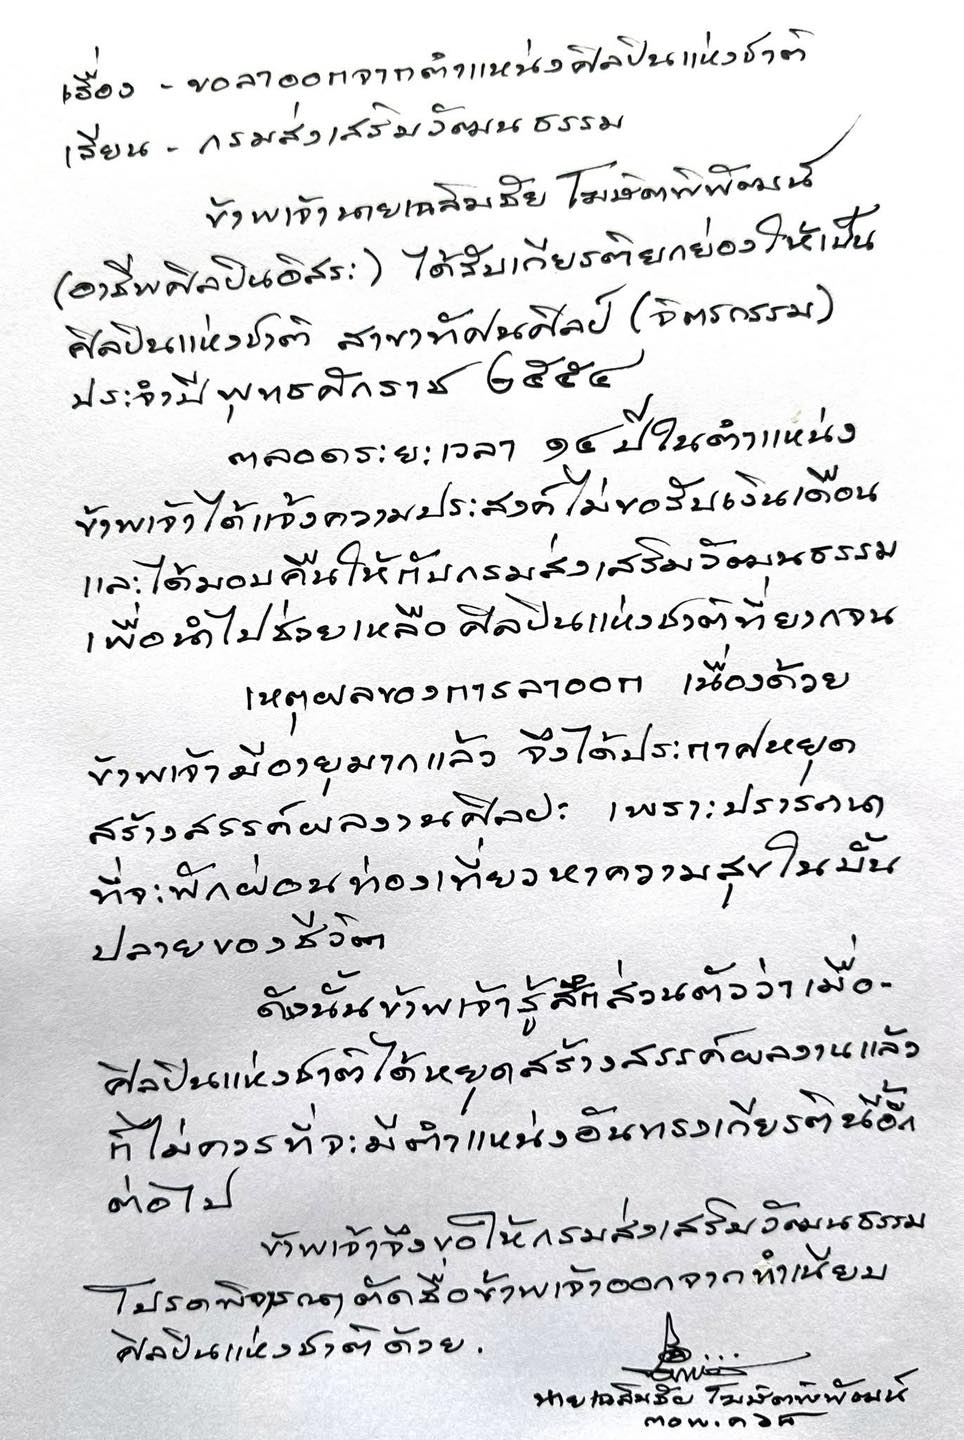 เรื่อง - ขอลาออกจากตำแหน่งศิลปินแห่งชาติ
เรียน - กรมส่งเสริมวัฒนธรรม
ข้าพเจ้านายเฉลิมชัย โฆษิตพิพัฒน์
(อาชีพศิลปินอิสระ) ได้รับเกียรติยกย่องให้เป็น
ศิลปินแห่งชาติ สาขาทัศนศิลป์ (จิตรกรรม)
ประจำปีพุทธศักราช ๒๕๕๔
ตลอดระยะเวลา ๑๔ ปีในตำแหน่ง
ข้าพเจ้าได้แจ้งความประสงค์ไม่ขอรับเงินเดือน
และได้มอบคืนให้กับกรมส่งเสริมวัฒนธรรม
เพื่อนำไปช่วยเหลือศิลปินแห่งชาติที่ยากจน
เหตุผลของการลาออก เนื่องด้วย
ข้าพเจ้ามีอายุมากแล้ว จึงได้ประกาศหยุด
สร้างสรรค์ผลงานศิลปะ เพราะปรารถนา
ที่จะพักผ่อนท่องเที่ยวหาความสุขในบั้น
ปลายของชีวิต
ดังนั้นข้าพเจ้ารู้สึกส่วนตัวว่าเมื่อ-
ศิลปินแห่งชาติได้หยุดสร้างสรรค์ผลงานแล้ว
ก็ไม่ควรที่จะมีตำแหน่งอันทรงเกียรตินี้อีก
ต่อไป
ข้าพเจ้าจึงขอให้กรมส่งเสริมวัฒนธรรม
โปรดพิจารณาตัดชื่อข้าพเจ้าออกจากทำเนียบ
ศิลปินแห่งชาติด้วย.
นายเฉลิมชัย โฆษิตพิพัฒน์